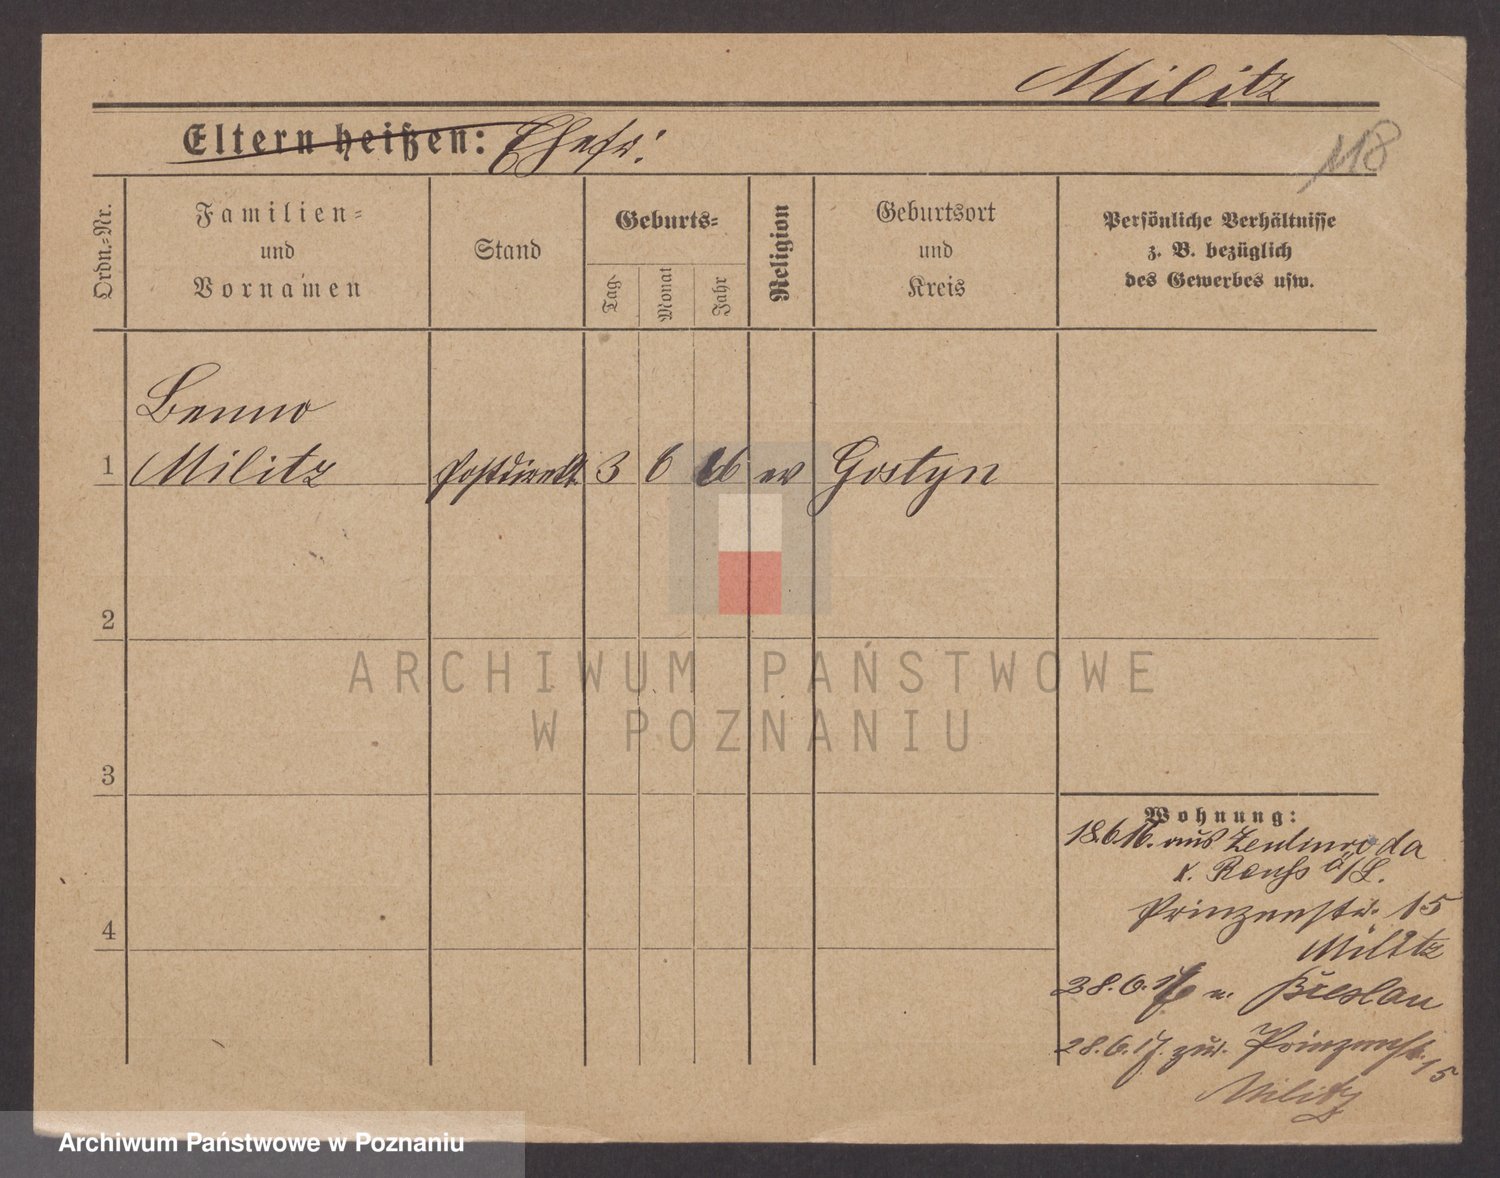 Militz
Eltern heißen: Ehefr.
118
Ordn.-Nr.
Familien-
und
Vornamen
Stand
Geburts-
Tag
Monat
Jahr
Religion
Geburtsort
und
Kreis
Persönliche Verhältnisse
z. B. bezüglich
des Gewerbes usw.
Benno
1 Militz Postdirekt. 3 6 ev Gostyn
2
3
4
ARCHIWUM PAŃSTWOWE
W POZNANIU
Wohnung:
18.6.16. aus Zeulenroda
Reuß ä/L.
Prinzenstr. 15
Militz
28.6. n. Breslau
28.6.17. zur. Prinzenstr. 15
Militz
Archiwum Państwowe w Poznaniu